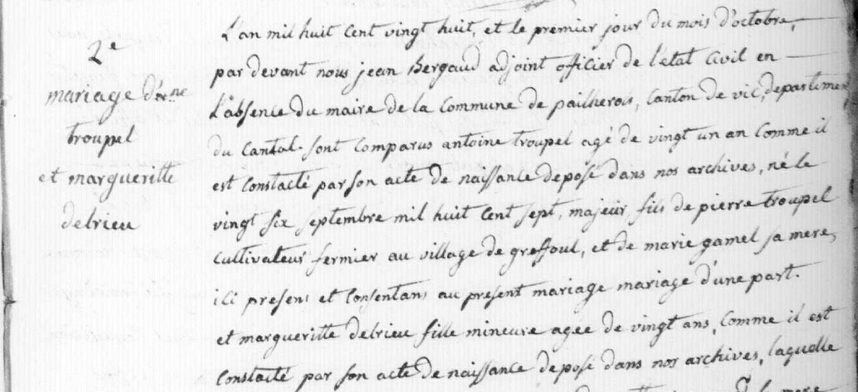 2e
mariage d'ane
troupel
et margueritte
delrieu
L'an mil huit Cent vingt huit, et le premier jour du mois d'octobre,
par devant nous jean Bergaud adjoint officier de l'état Civil en
L'absence du maire de la Commune de pailherois, Canton de vic, departement
du Cantal. sont Comparus antoine troupel agé de vingt un an Comme il
est Constaté par son acte de naissance deposé dans nos archives, né le
vingt six septembre mil huit Cent sept, majeur fils de pierre troupel
Cultivateur fermier au village de greffoul, et de marie gamel sa mere,
ici presens et Consentans au present mariage mariage d'une part.
et margueritte delrieu fille mineure agee de vingt ans, Comme il est
Constaté par son acte de naissance deposé dans nos archives, laquelle
mere